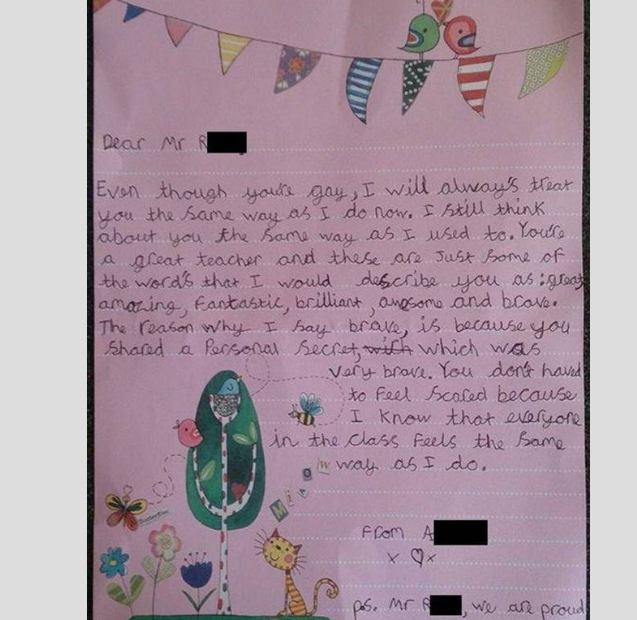 Dear Mr R
Even though you're gay, I will always's treat
you the same way as I do now. I still think
about you the same way as I used to. You're
a great teacher and these are just some of
the word's that I would describe you as: great
amazing, fantastic, brilliant, awesome and brave.
The reason why I say brave, is because you
shared a Personal secret, with which was
very brave. You don't haved
to feel scared because
I know that everyone
in the class feels the same
way as I do.
Miaow
From A
x ♡ x
ps. Mr R, we are proud